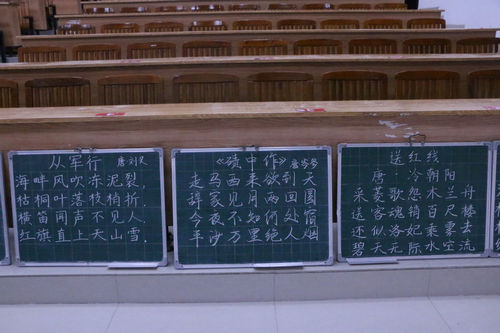 从军行 唐 刘叉
海畔风吹冻泥裂,
枯桐叶落枝梢折.
横笛闻声不见人
红旗直上天山雪.
《碛中作》唐岑参
走马西来欲到天
辞家见月两回圆
今夜不知何处宿
平沙万里绝人烟
送红线
唐·冷朝阳
采菱歌怨木兰舟
送客魂销百尺楼
还似洛妃乘雾去
碧天无际水空流